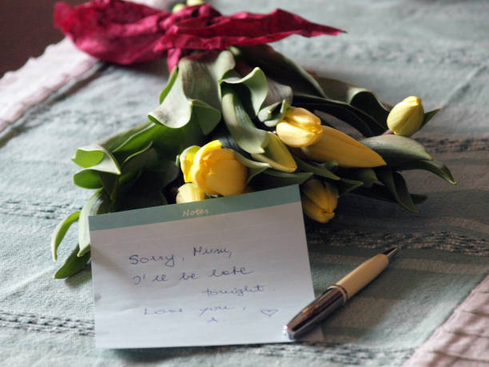 Notes
Sorry, Mum,
I'll be late
tonight
Love you,
x ♡